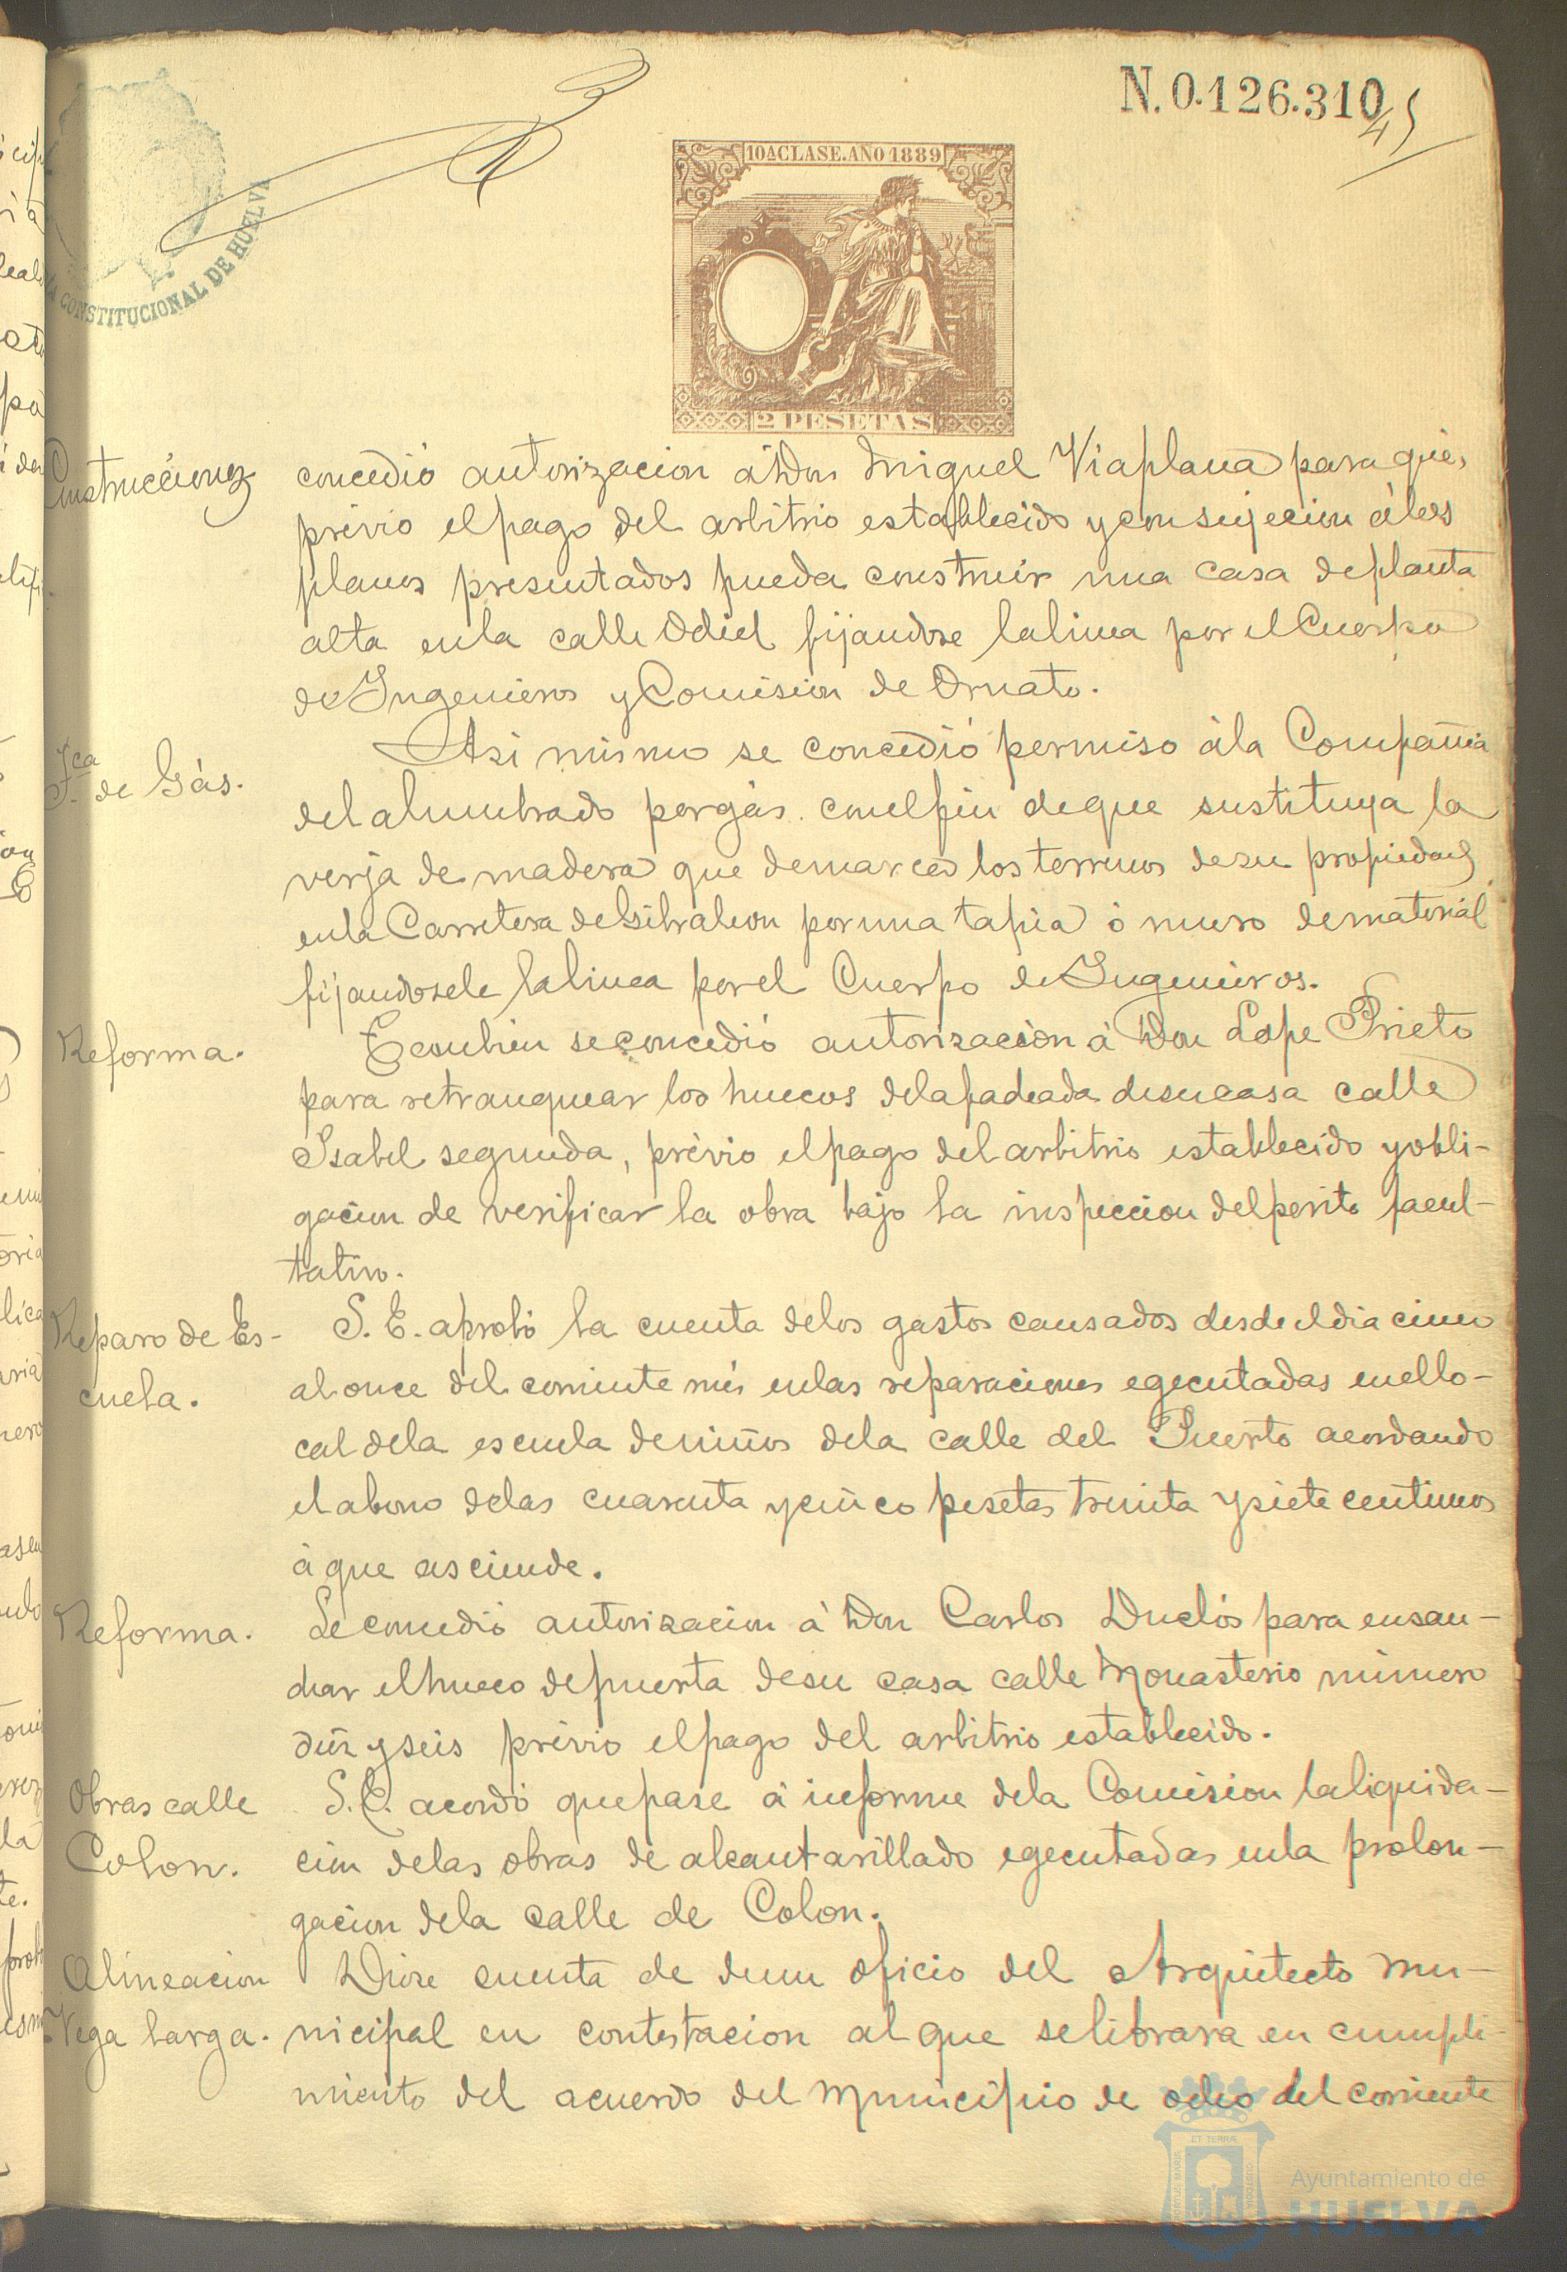 N. 0.126.310
45
10A CLASE. AÑO 1889
2 PESETAS
CONSTITUCIONAL DE HUELVA
Construcciones
concedió autorizacion á Don Miguel Viaplana para que,
prévio el pago del arbitrio establecido y con sujecion á los
planos presentados pueda construir una casa de planta
alta en la calle Odiel fijandose la linea por el Cuerpo
de Ingenieros y Comision de Ornato.
Fca de Gás.
Asi mismo se concedió permiso á la Compañia
del alumbrado por gás. con el fin de que sustituya la
verja de madera que demarca los terrenos de su propiedad
en la Carretera de Gibraleon por una tapia ó muro de material
fijandosele la linea por el Cuerpo de Ingenieros.
Reforma.
Tambien se concedió autorizacion á Don Lope Prieto
para retranquear los huecos de la fachada de su casa calle
Isabel segunda, prévio el pago del arbitrio establecido y obli-
gacion de verificar la obra bajo la inspeccion del perito facul-
tativo.
Reparo de Es-
cuela.
S. E. aprobó la cuenta de los gastos causados desde el dia cinco
al once del corriente més en las reparaciones egecutadas en el lo-
cal de la escuela de niños de la calle del Puerto acordando
el abono de las cuarenta y cinco pesetas treinta y siete centimos
á que asciende.
Reforma.
Se concedió autorizacion á Don Carlos Duclós para ensan-
char el hueco de puerta de su casa calle Monasterio número
diez y seis prévio el pago del arbitrio establecido.
Obras calle
Colon.
S. E. acordó que pase á informe de la Comision la liquida-
cion de las obras de alcantarillado egecutadas en la prolon-
gacion de la calle de Colon.
Alineacion
Vega larga.
Diose cuenta de de un oficio del Arquitecto mu-
nicipal en contestacion al que se librara en cumpli-
miento del acuerdo del Municipio de ocho del corriente
Ayuntamiento de
HUELVA